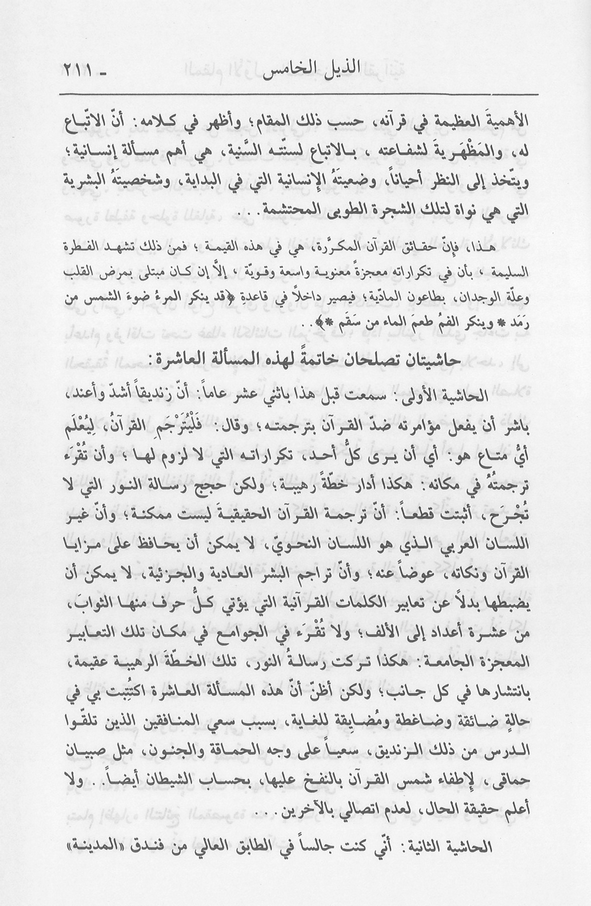 الذيل الخامس
ـ ٢١١
الأهميةَ العظيمة في قرآنه، حسب ذلك المقام؛ وأظهر في كلامه: أنّ الاتّباع
له، والمَظْهَريةَ لشفاعته ، بالاتباع لسنّته السَّنية، هي أهم مسألة إنسانية؛
ويتّخذ إلى النظر أحياناً، وضعيتهُ الإنسانية التي في البداية، وشخصيتَهُ البشرية
التي هي نواة لتلك الشجرة الطوبى المحتشمة. . .
هـذا، فإنّ حقـائق القرآن المكـرَّرة، هي في هذه القيمـة ؛ فمن ذلك تشهـد الفـطرة
السليمة ، بأن في تكراراته معجزةً معنوية واسعة وقويّة ، إلاَّ إن كـان مبتلى بمرض القلب
وعلّة الوجدان، بطاعون المادّية؛ فيصير داخلًا في قاعدةِ ﴿قد ينكر المرءُ ضوءَ الشمس من
رَمَد * وينكر الفمُ طعمَ الماء من سَقَم *﴾. .
حاشيتان تصلحان خاتمةً لهذه المسألة العاشرة:
الحاشية الأولى: سمعت قبل هذا باثني عشر عاماً: أنّ زنديقاً أشدّ وأعند،
باشر أن يفعل مؤامرته ضدّ القـرآن بترجمتـه؛ وقال: فَلْيُتَرْجَمِ القرآنُ، لِيُعْلَم
أيُّ متـاع هو: أي أن يـرى كلُّ أحـد، تكراراتـه التي لا لزوم لهـا؛ وأن تُقْرَء
ترجمتُهُ في مكانه: هكذا أدار خطّةً رهيبـة؛ ولكن حججِ رسـالة النـور التي لا
تُجْـرَح، أثبتت قطعـاً: أنّ ترجمـة القـرآن الحقيقيـةَ ليست ممكنـة؛ وأنّ غيـر
اللسـان العربي الـذي هو اللسـان النحـويّ، لا يمكن أن يحـافظ على مـزايـا
القرآن ونكاته، عوضاً عنه؛ وأنّ تراجم البشر العادية والجـزئية، لا يمكن أن
يضبطها بدلًا عن تعابير الكلمات القرآنية التي يؤتي كـلُّ حرف منهـا الثوابَ،
من عشـرة أعداد إلى الألف؛ ولا تُقْـرَء في الجوامـع في مكان تلك التعـابيـر
المعجزة الجامعـة: هكذا تـركت رسالـةُ النور، تلك الخطّةَ الرهيبة عقيمة،
بانتشارها في كل جانب؛ ولكن أظنّ أنّ هذه المسألة العاشرة اكتُتِبت بي في
حالةٍ ضـائقة وضـاغطة ومُضـايِقة للغـاية، بسبب سعي المنـافقين الذين تلقّـوا
الـدرس من ذلك الـزنديق، سعيـاً على وجه الحماقة والجنـون، مثل صبيـان
حماقى، لإطفاء شمس القرآن بالنفخ عليها، بحساب الشيطان أيضـاً. . ولا
أعلم حقيقة الحال، لعدم اتصالي بالآخرين. . .
الحاشية الثانية: أنّي كنت جالساً في الطابق العالي من فندق «المدينـة»